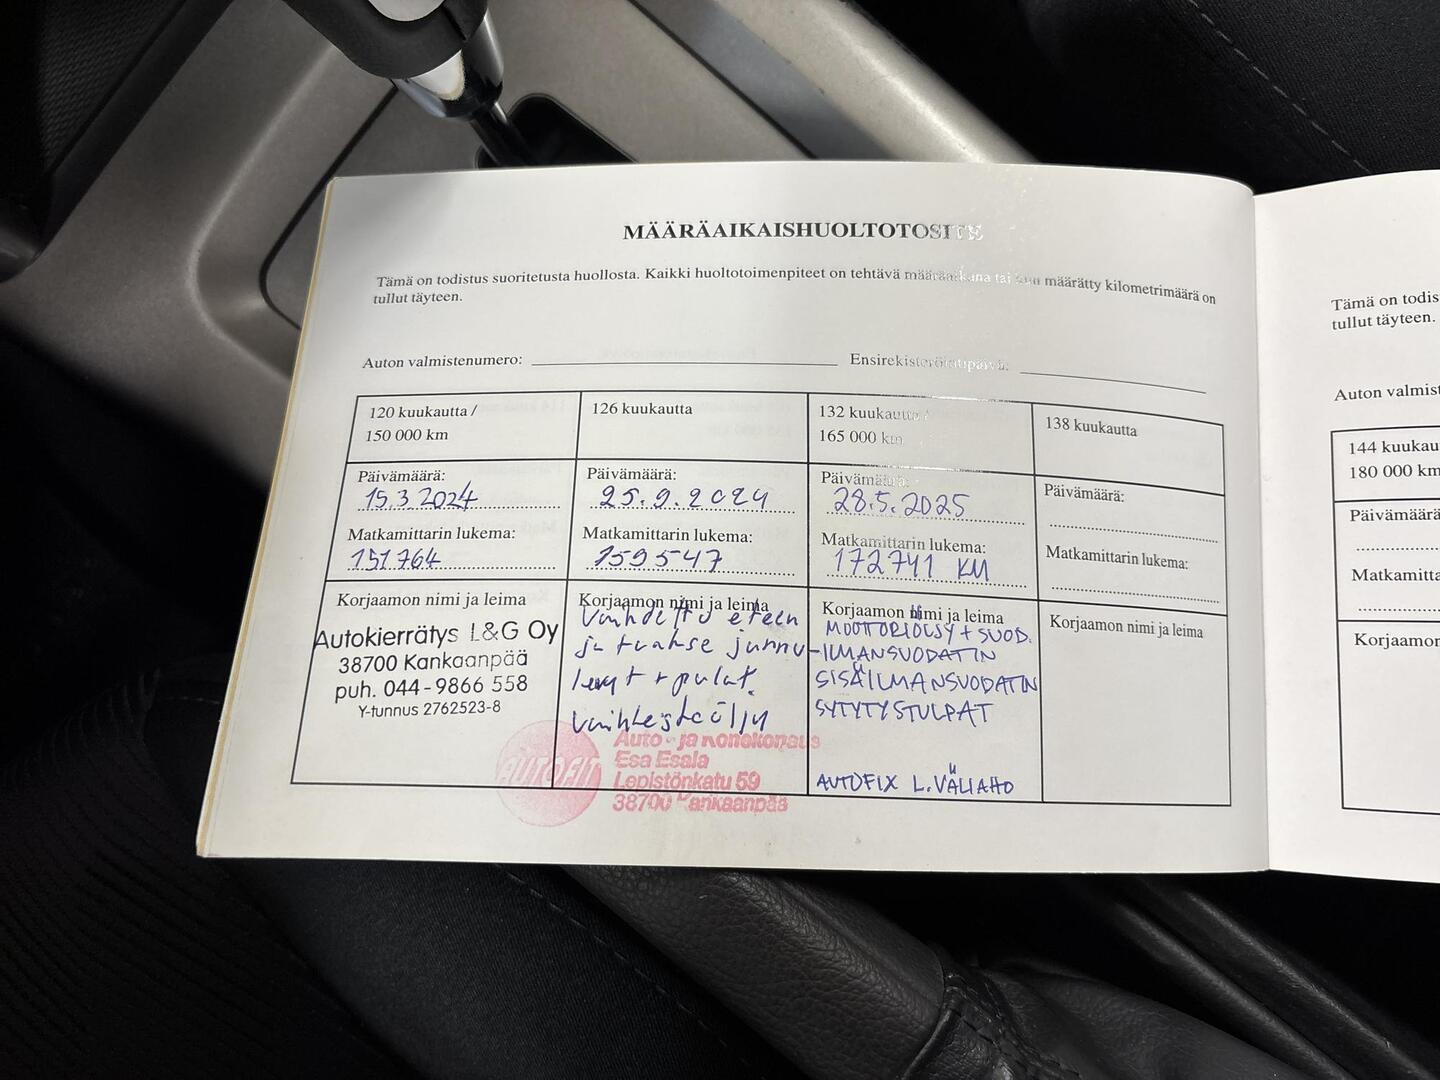 MÄÄRÄAIKAISHUOLTOTOSITE
Tämä on todistus suoritetusta huollosta. Kaikki huoltotoimenpiteet on tehtävä määräaikana tai kun määrätty kilometrimäärä on
tullut täyteen.
Auton valmistenumero:
Ensirekisteröintipäivä:
120 kuukautta /
150 000 km
Päivämäärä:
15.3.2024
Matkamittarin lukema:
151764
Korjaamon nimi ja leima
Autokierrätys L&G Oy
38700 Kankaanpää
puh. 044-9866 558
Y-tunnus 2762523-8
126 kuukautta
Päivämäärä:
25.9.2024
Matkamittarin lukema:
159547
Korjaamon nimi ja leima
Vaihdettu eteen
ja taakse jarru-
levyt + palat.
vaihteistoöljy
AUTOFIT
Auto- ja konekorjaus
Esa Esala
Lepistönkatu 59
38700 Kankaanpää
132 kuukautta /
165 000 km
Päivämäärä:
28.5.2025
Matkamittarin lukema:
172741 KM
Korjaamon nimi ja leima
MOOTTORIÖLJY + SUOD.
ILMANSUODATIN
SISÄILMANSUODATIN
SYTYTYSTULPAT
AUTOFIX L. VÄLIAHO
138 kuukautta
Päivämäärä:
Matkamittarin lukema:
Korjaamon nimi ja leima
Tämä on todis
tullut täyteen.
Auton valmist
144 kuukau
180 000 km
Päivämäärä
Matkamitta
Korjaamon